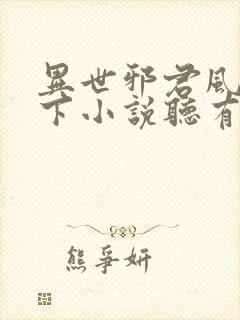 異世邪君風
下小說聽有
熊爭妍